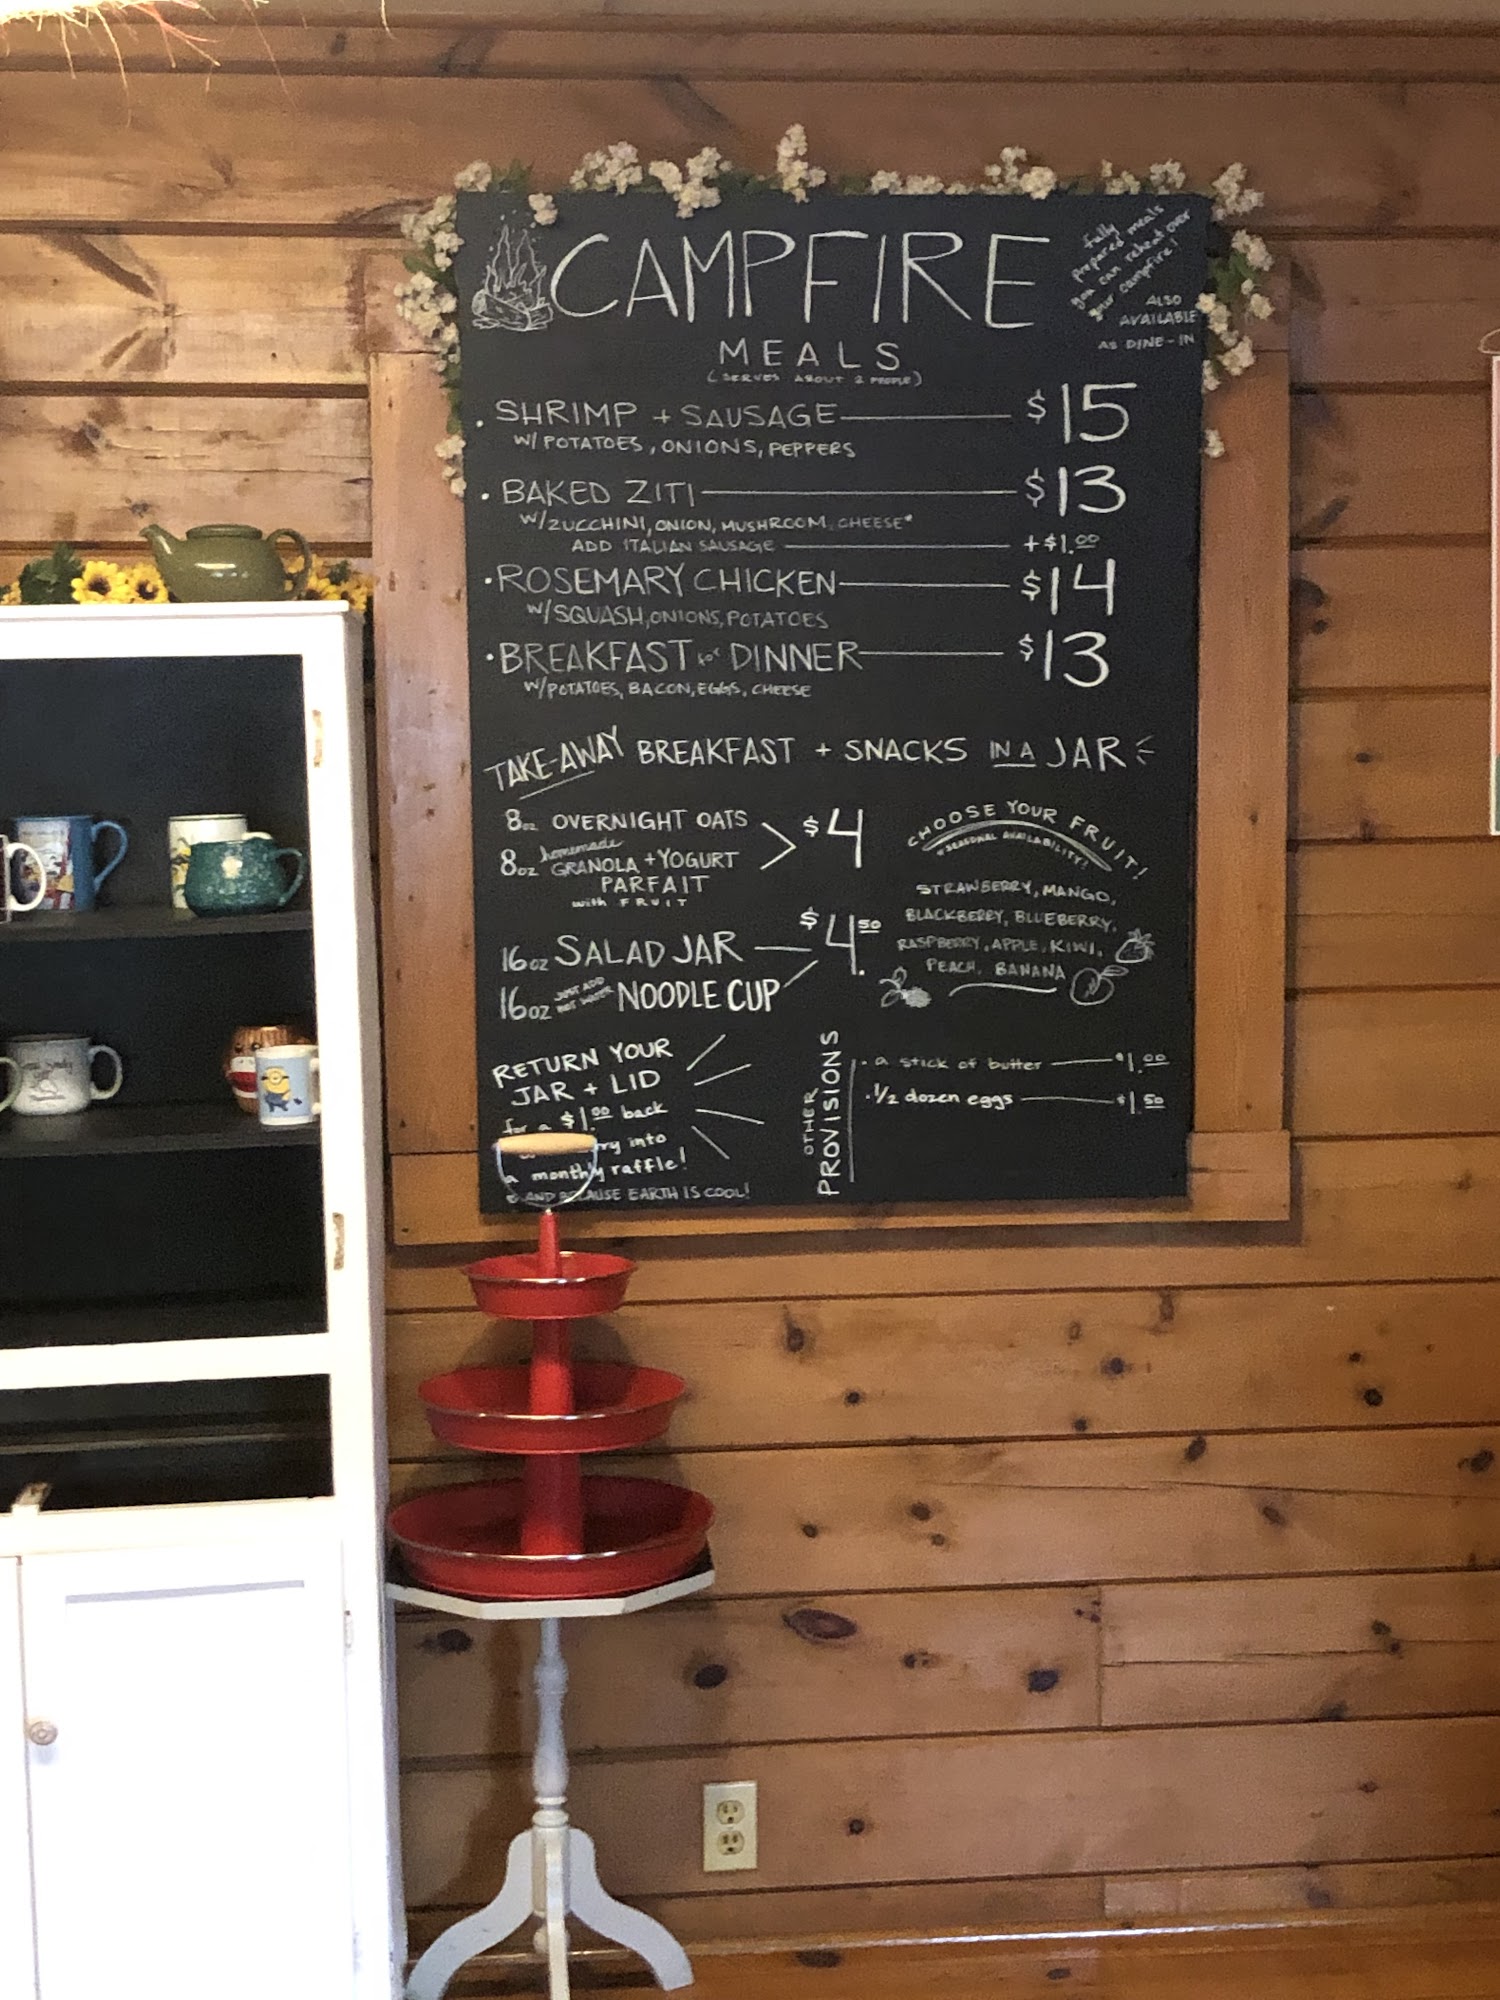 CAMPFIRE
fully
prepared meals
you can reheat over
your campfire!
ALSO
AVAILABLE
AS DINE-IN
MEALS
(SERVES ABOUT 2 PEOPLE)
• SHRIMP + SAUSAGE $15
W/ POTATOES, ONIONS, PEPPERS
• BAKED ZITI $13
W/ZUCCHINI, ONION, MUSHROOM, CHEESE*
ADD ITALIAN SAUSAGE +$1.00
• ROSEMARY CHICKEN $14
W/SQUASH, ONIONS, POTATOES
• BREAKFAST for DINNER $13
W/POTATOES, BACON, EGGS, CHEESE
TAKE-AWAY BREAKFAST + SNACKS IN A JAR
8oz OVERNIGHT OATS $4
8oz homemade GRANOLA + YOGURT
PARFAIT
with FRUIT
16oz SALAD JAR $4.50
16oz JUST ADD HOT WATER NOODLE CUP
CHOOSE YOUR FRUIT!
*SEASONAL AVAILABILITY!
STRAWBERRY, MANGO,
BLACKBERRY, BLUEBERRY,
RASPBERRY, APPLE, KIWI,
PEACH, BANANA
RETURN YOUR
JAR + LID
for a $1.00 back
into
a monthly raffle!
AND BECAUSE EARTH IS COOL!
OTHER
PROVISIONS
• a stick of butter $1.00
• 1/2 dozen eggs $1.50